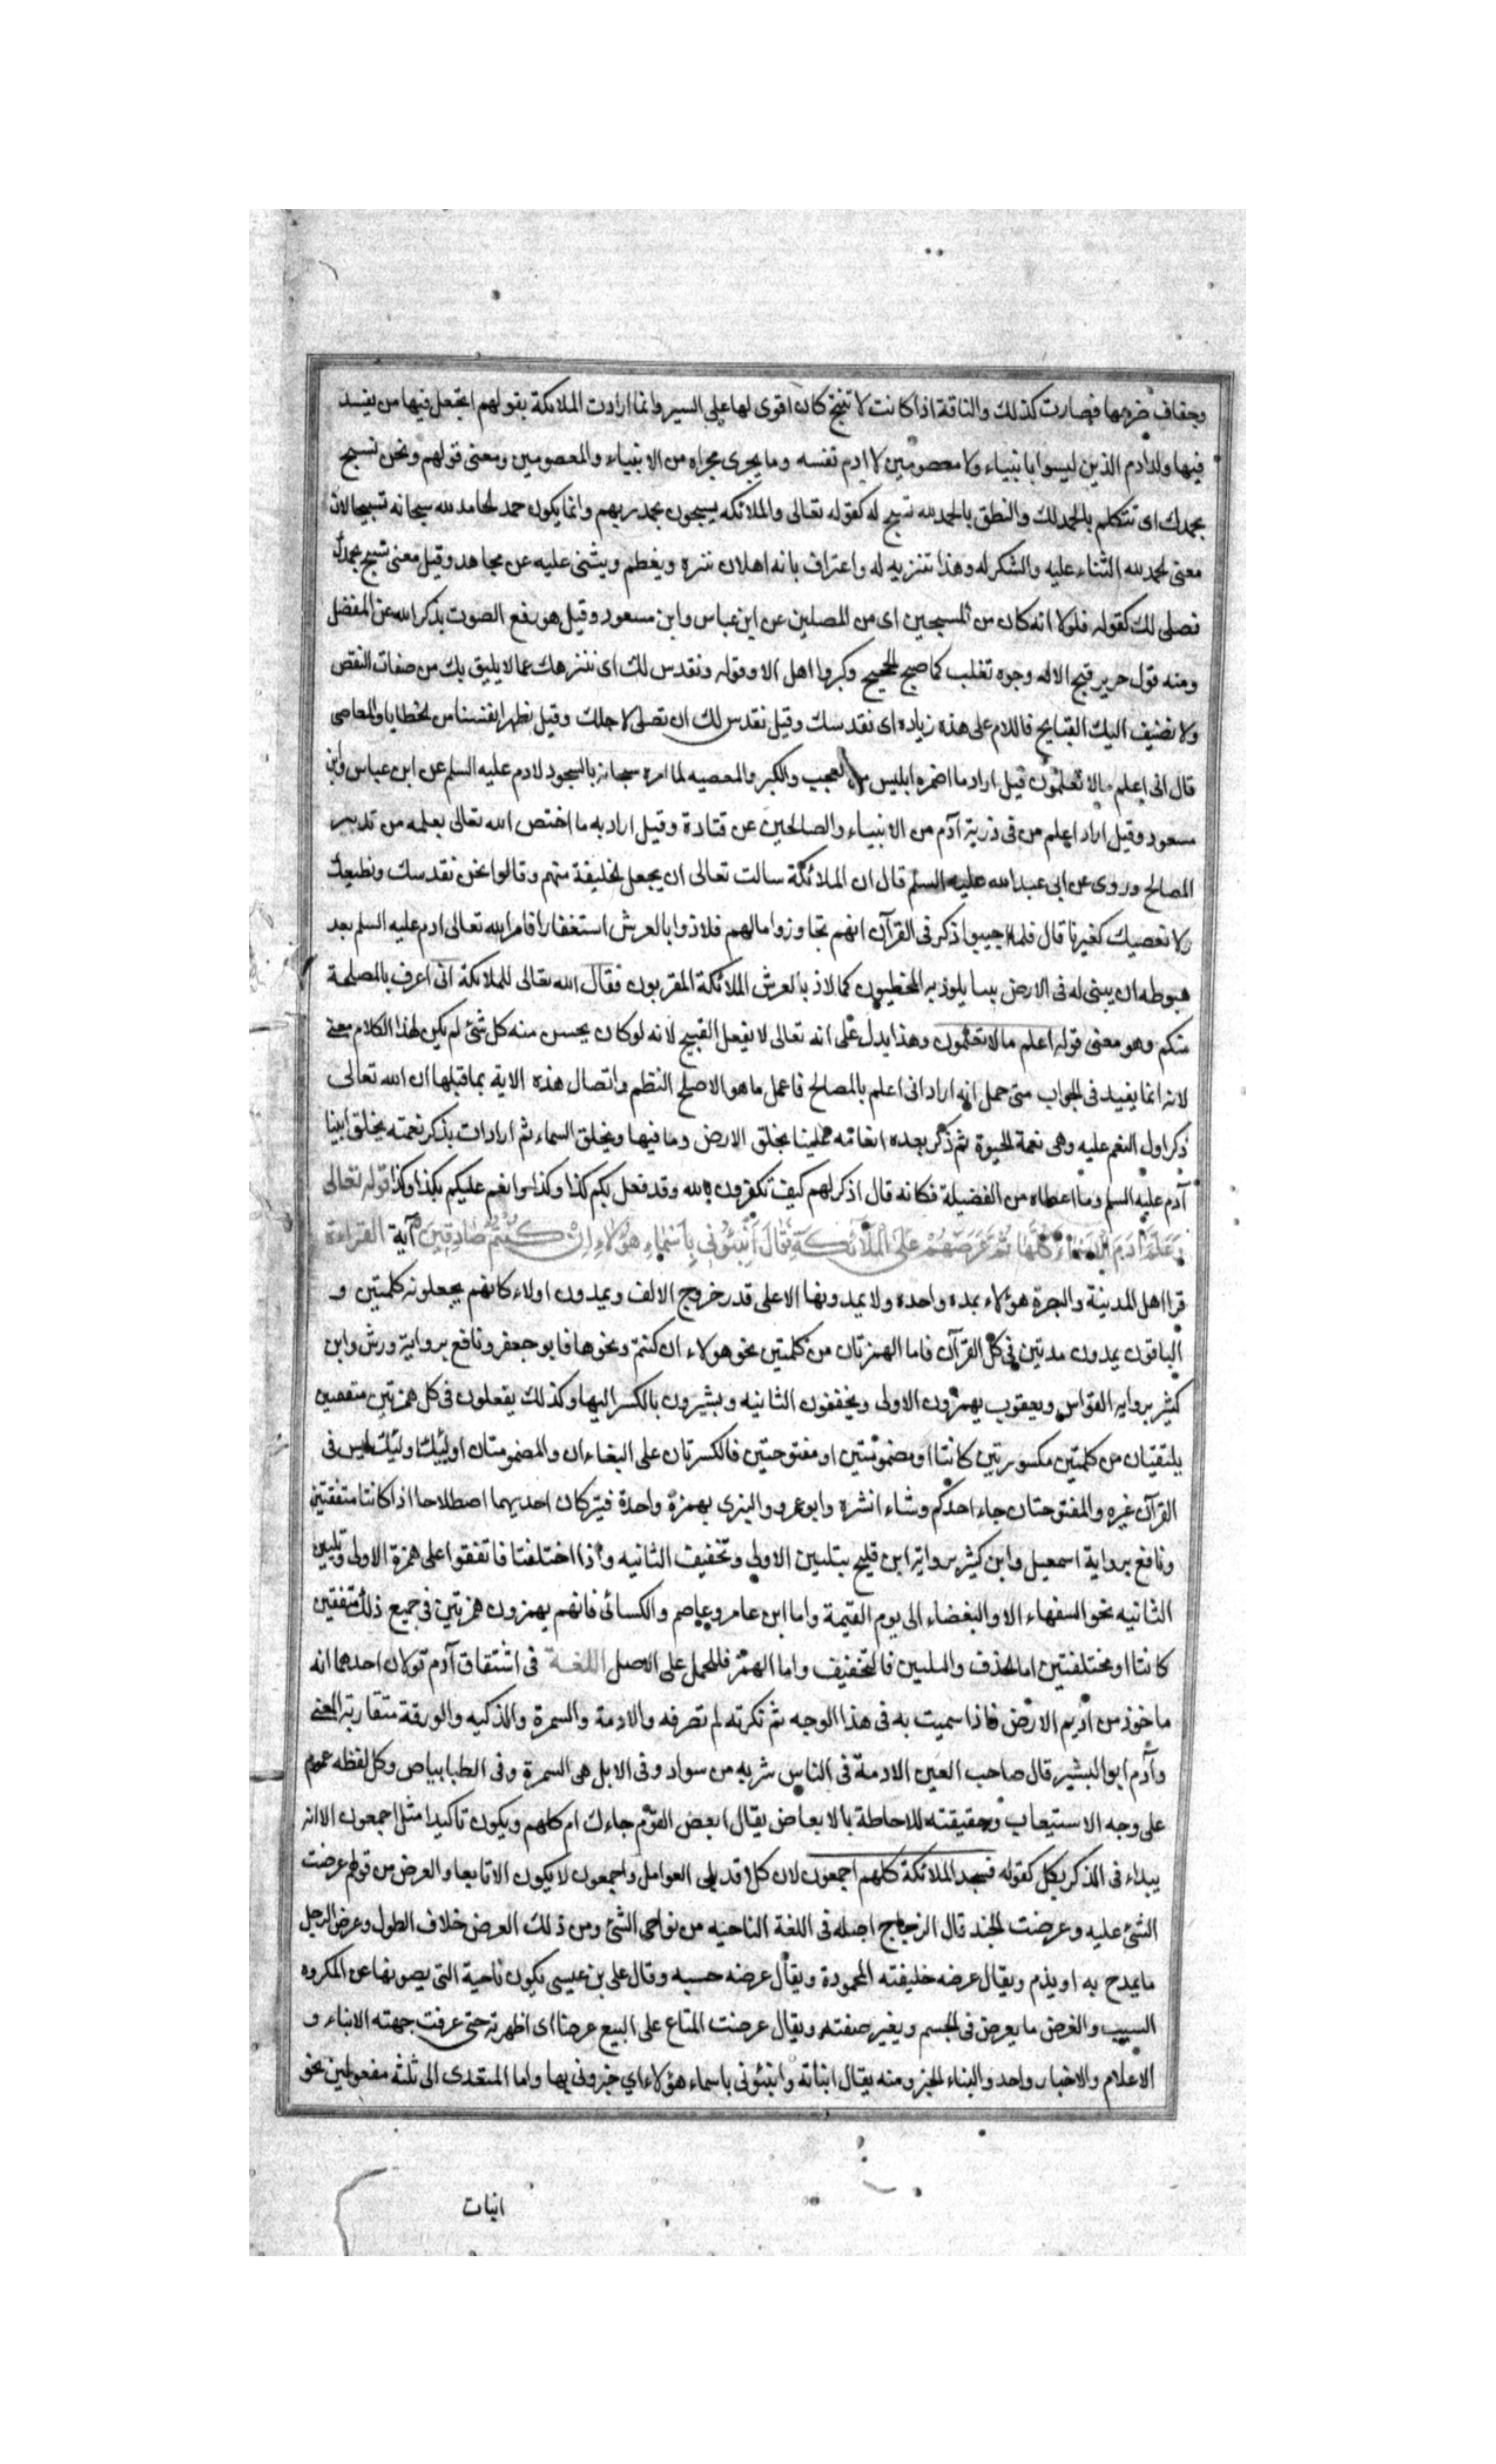 وجفاف ضرعها فصارت كذلك والناقة اذا كانت لا تنتج كان اقوى لها على السير وانما ارادت الملائكة بقولهم اتجعل فيها من يفسد
فيها ولد آدم الذين ليسوا بانبياء ولا معصومين لا ادم نفسه وما يجرى مجراه من الانبياء والمعصومين ومعنى قولهم ونحن نسبح
بحمدك اى نتكلم بالحمد لك والنطق بالحمد لله تسبيح له كقوله تعالى والملائكه يسبحون بحمد ربهم وانما يكون حمد الحامد لله سبحانه تسبيحا لان
معنى الحمد لله الثناء عليه والشكر له وهذا تنزيه له واعتراف بانه اهل لان ينزه ويعظم ويثنى عليه عن مجاهد وقيل معنى نسبح بحمدك
نصلى لك كقوله فلولا انه كان من المسبحين اى من المصلين عن ابن عباس وابن مسعود وقيل هو رفع الصوت بذكر الله عن المفضل
ومنه قول جرير قبح الاله وجوه تغلب كما صبح الحجيج وكبروا اهل الا وقوله ونقدس لك اى ننزهك عما لا يليق بك من صفات النقص
ولا نضيف اليك القبايح فاللام على هذه زياده اى نقدسك وقيل نقدس لك ان نصلى لاجلك وقيل نطهر انفسنا من الخطايا والمعاصى
قال انى اعلم ما لا تعلمون قيل اراد ما اضمره ابليس من العجب والكبر والمعصيه لما امره سبحانه بالسجود لادم عليه السلم عن ابن عباس وابن
مسعود وقيل اراد اعلم من فى ذرية آدم من الانبياء والصالحين عن قتادة وقيل اراد به ما اختص الله تعالى بعلمه من تدبير
المصالح وروى عن ابى عبد الله عليه السلم قال ان الملائكة سالت تعالى ان يجعل الخليفة منهم وقالوا نحن نقدسك ونطيعك
ولا نعصيك كغيرنا قال فلما اجيبوا ذكر فى القرآن انهم تجاوزوا ما لهم فلاذوا بالعرش استغفارا فامر الله تعالى ادم عليه السلم بعد
هبوطه ان يبنى له فى الارض بيتا يلوذ به المخطئون كما لاذ بالعرش الملائكة المقربون فقال الله تعالى للملائكة انى اعرف بالمصلحة
منكم وهو معنى قوله اعلم ما لا تعلمون وهذا يدل على انه تعالى لا يفعل القبيح لانه لو كان يحسن منه كل شئ لم يكن لهذا الكلام معنى
لانه انما يفيد فى الجواب متى حمل انه اراد انى اعلم بالمصالح فاعمل ما هو الاصلح النظم واتصال هذه الاية بما قبلها ان الله تعالى
ذكر اول النعم عليه وهى نعمة الحيوة ثم ذكر بعده انعامه علينا بخلق الارض وما فيها وبخلق السماء ثم اراد ان يذكر نعمته بخلق ابينا
آدم عليه السلم وما اعطاه من الفضيلة فكانه قال اذكر لهم كيف تكفرون بالله وقد فعل بكم كذا وكذا وانعم عليكم بكذا وكذا قوله تعالى
وَعَلَّمَ آدَمَ الْاَسْمَاءَ كُلَّهَا ثُمَّ عَرَضَهُمْ عَلَى الْمَلَائِكَةِ فَقَالَ اَنْبِئُونِى بِاَسْمَاءِ هٰؤُلَاءِ اِنْ كُنْتُمْ صَادِقِينَ آية القراءة
قرا اهل المدينة والبصرة هؤلاء بمده واحده ولا يمدونها الا على قدر خروج الالف ويمدون اولاء كانهم يجعلونه كلمتين و
الباقون يمدون مدتين فى كل القرآن فاما الهمزتان من كلمتين نحو هولاء ان كنتم ونحوها فابو جعفر ونافع برواية ورش وابن
كثير بروايه القواس ويعقوب يهمزون الاولى ويخففون الثانيه ويشيرون بالكسر اليها وكذلك يفعلون فى كل همزتين متفقتين
يلتقيان من كلمتين مكسورتين كانتا او مضمومتين او مفتوحتين فالكسرتان على البغاء ان والمضمومتان اولياء اولئك ليس فى
القرآن غيره والمفتوحتان جاء احدكم وشاء انشره وابو عمرو والبزى بهمزة واحدة فيتركان احديهما اصطلاحا اذا كانتا متفقتين
ونافع برواية اسمعيل وابن كثير برواية ابن فليح بتليين الاولى وتخفيف الثانيه واذا اختلفتا فاتفقوا على همزة الاولى وتليين
الثانيه نحو السفهاء الا والبغضاء الى يوم القيمة واما ابن عامر وعاصم والكسائى فانهم يهمزون همزتين فى جميع ذلك متفقتين
كانتا او مختلفتين اما الحذف والتليين فالتخفيف واما الهمز فللحمل على الاصل اللغة فى اشتقاق آدم قولان احدهما انه
ماخوذ من اديم الارض فاذا سميت به فى هذا الوجه ثم نكرته لم تصرفه والادمة والسمرة والدكنه والورقة متقاربة المعنى
وآدم ابو البشر قال صاحب العين الادمة فى الناس شربه من سواد وفى الابل هى السمرة وفى الظبا بياض وكل لفظه عموم
على وجه الاستيعاب وحقيقته للاحاطة بالابعاض يقال ابعض القوم جاءك ام كلهم ويكون تاكيدا مثل اجمعون الا انه
يبداء فى الذكر بكل كقوله فسجد الملائكة كلهم اجمعون لان كلا قد يلى العوامل واجمعون لا يكون الا تابعا والعرض من قولهم عرضت
الشئ عليه وعرضت الجند قال الزجاج اصله فى اللغة الناحيه من نواحى الشئ ومن ذلك العرض خلاف الطول وعرض الرجل
ما يمدح به او يذم ويقال عرضه خليقته المحمودة ويقال عرضه حسبه وقال على بن عيسى يكون ناحية التى يصونها عن المكروه
السبب والعرض ما يعرض فى الجسم ويغير صفته ويقال عرضت المتاع على البيع عرضا اى اظهرته حتى عرفت جهته الانباء و
الاعلام والاخبار واحد والنباء الخبر ومنه يقال انباته وانبئونى باسماء هؤلاء اي خبرونى بها واما المتعدى الى ثلثه مفعولين نحو
انبات